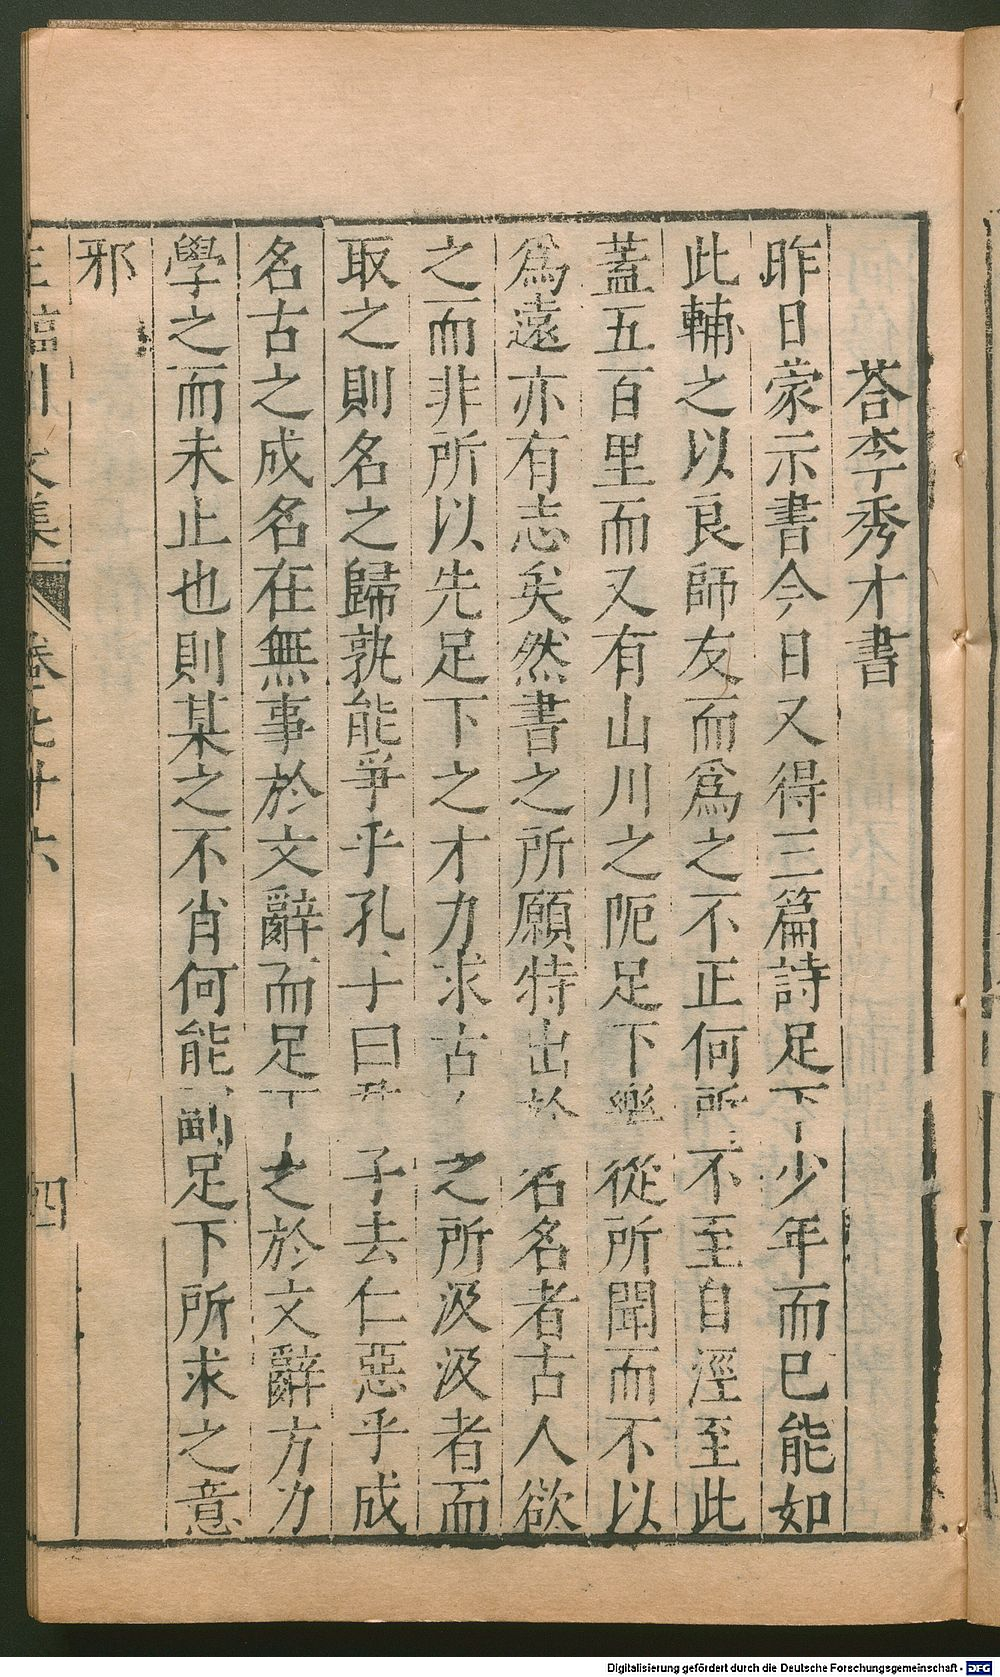 荅李秀才書
昨日蒙示書今日又得三篇詩足下少年而已能如
此輔之以良師友而爲之不正何所不至自涇至此
蓋五百里而又有山川之阨足下樂從所聞而不以
爲遠亦有志矣然書之所願特出於名名者古人欲
之而非所以先足下之才力求古之所汲汲者而
取之則名之歸孰能爭乎孔子曰君子去仁惡乎成
名古之成名在無事於文辭而足下之於文辭方力
學之而未止也則某之不肖何能副足下所求之意
邪
王臨川文集 卷七十六 四
Digitalisierung gefördert durch die Deutsche Forschungsgemeinschaft - DFG